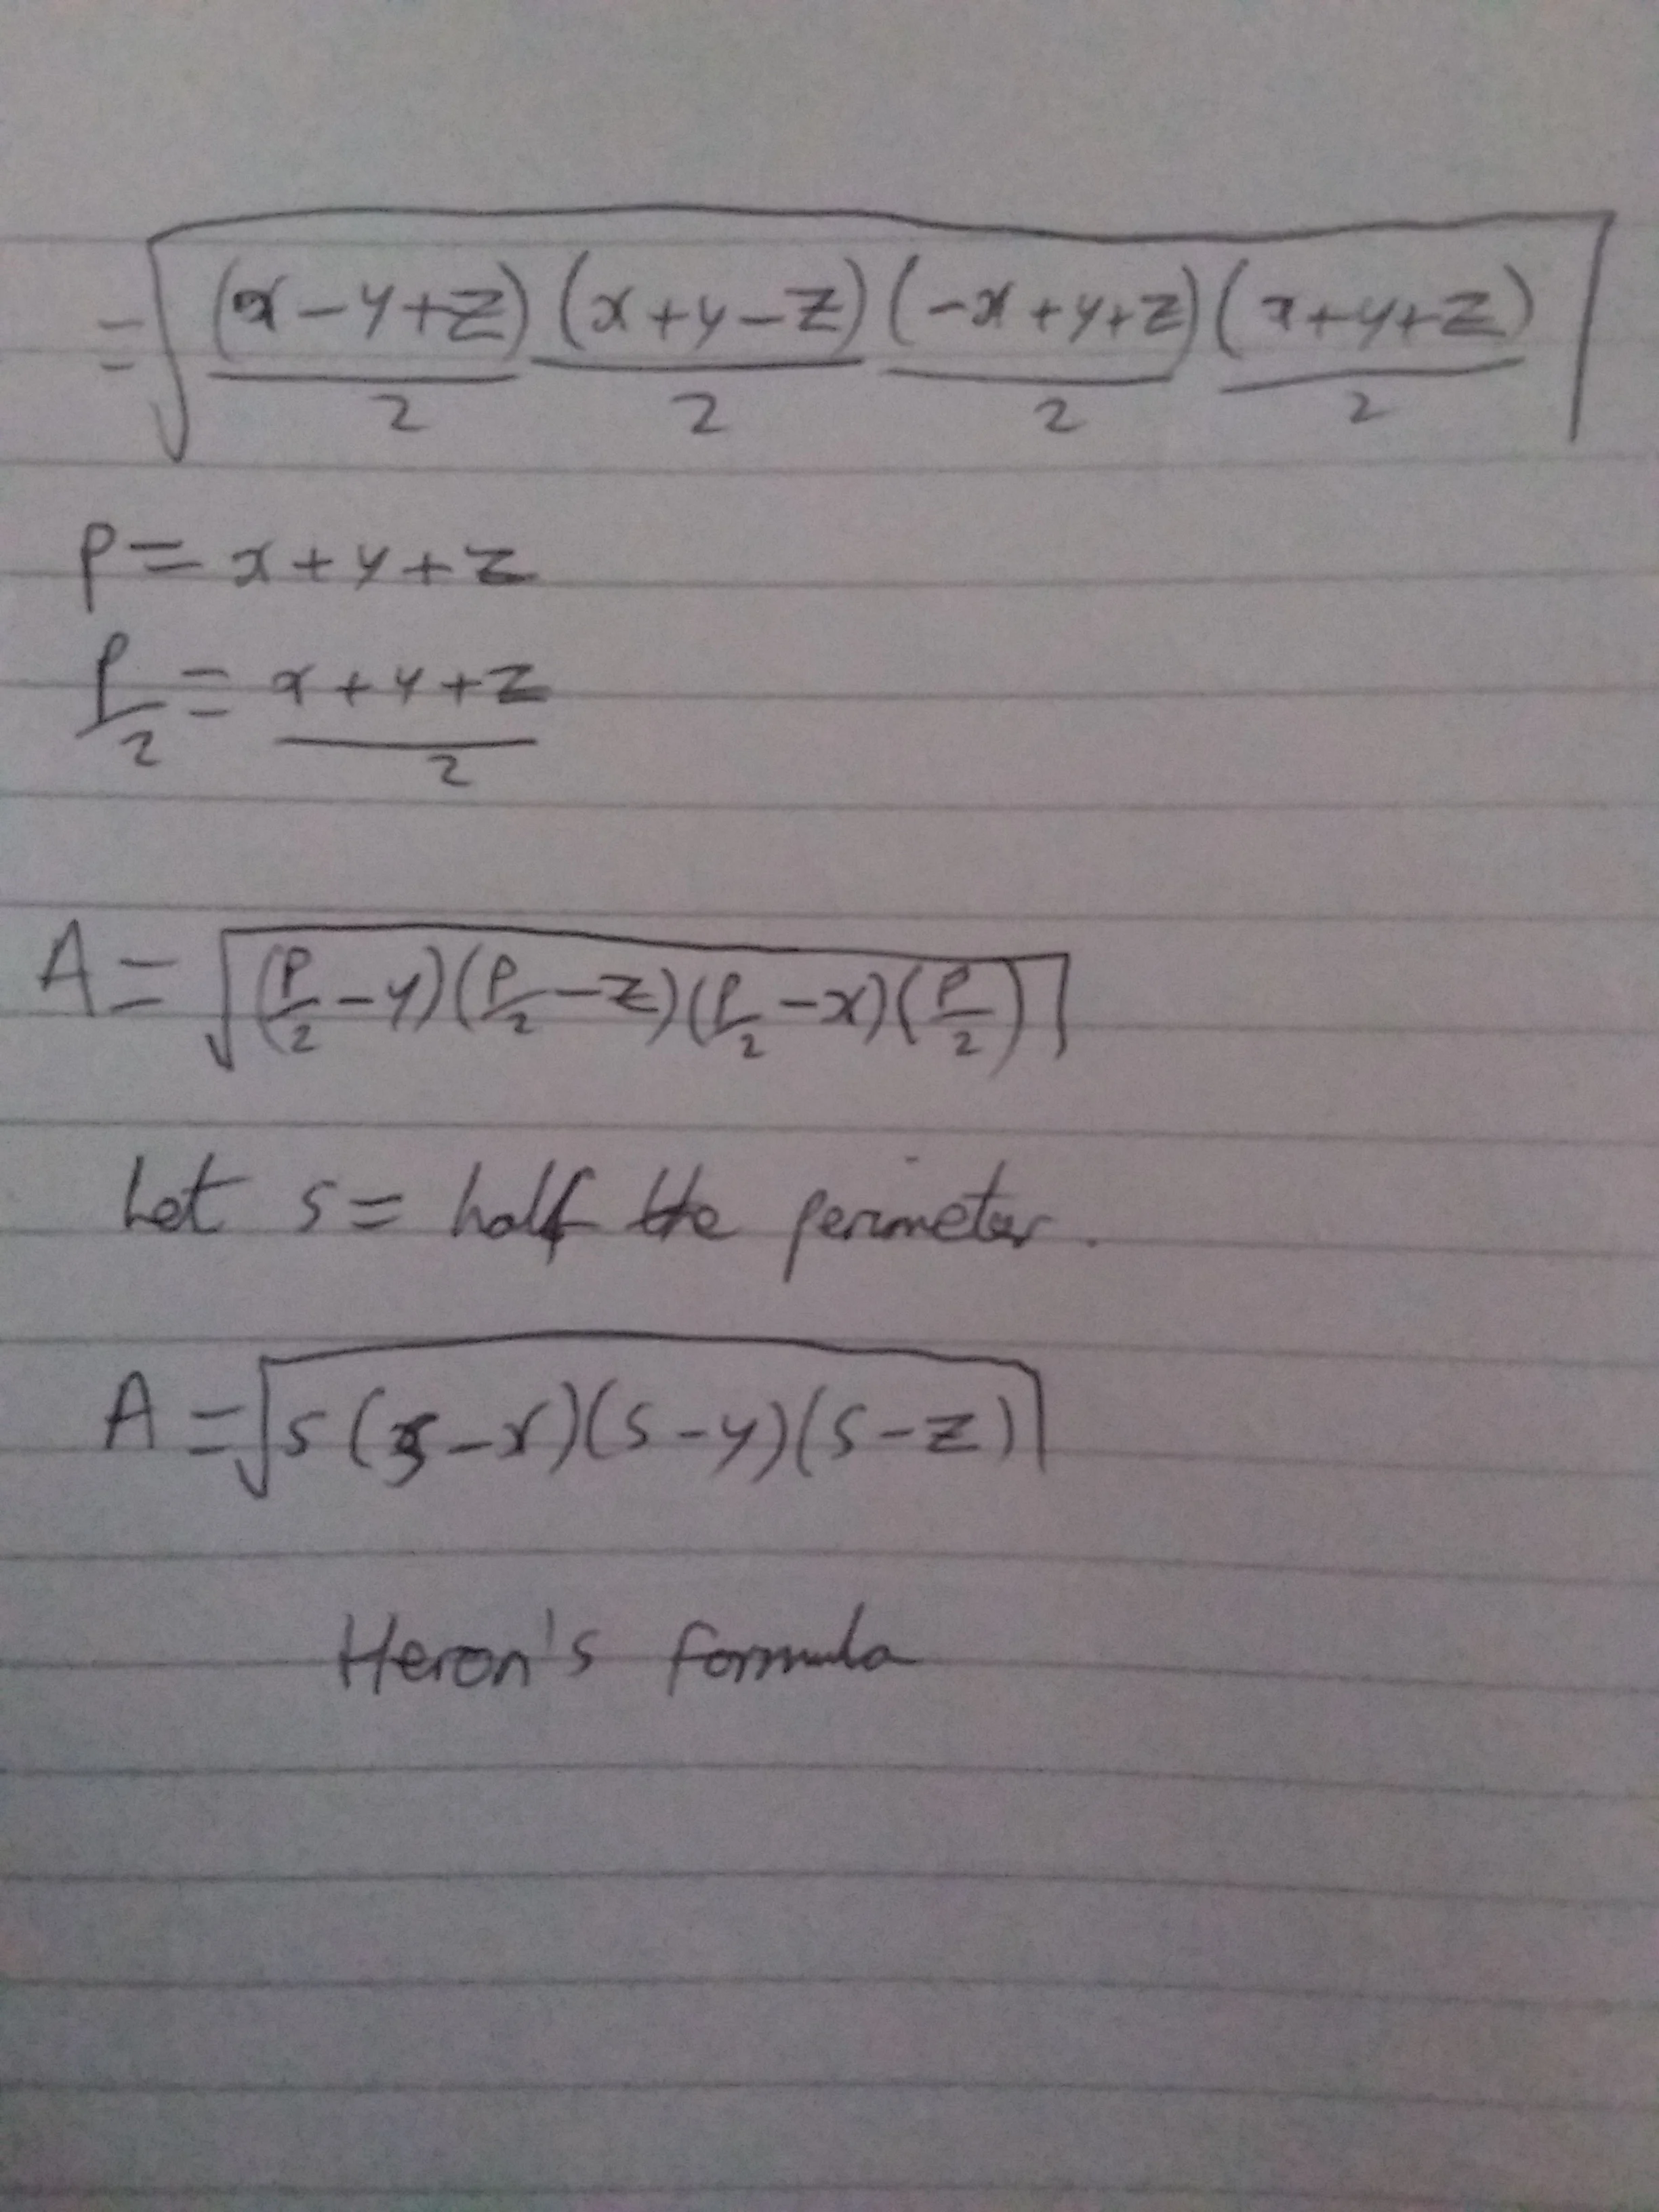 = √((x-y+z)/2 (x+y-z)/2 (-x+y+z)/2 (x+y+z)/2)
P = x+y+z
P/2 = (x+y+z)/2
A = √((P/2 - y)(P/2 - z)(P/2 - x)(P/2))
Let s = half the perimeter.
A = √(s(s-x)(s-y)(s-z))
Heron's formula